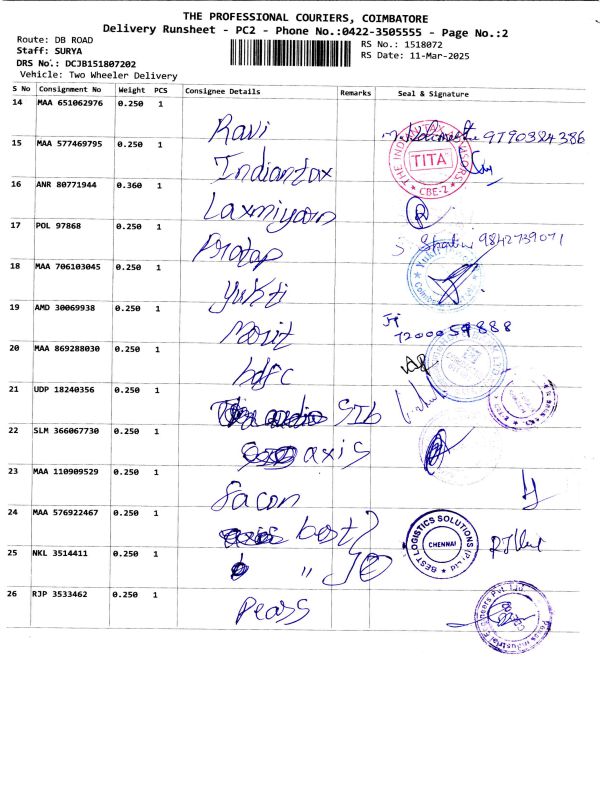 THE PROFESSIONAL COURIERS, COIMBATORE
Delivery Runsheet - PC2 - Phone No.:0422-3505555 - Page No.:2
Route: DB ROAD
RS No.: 1518072
Staff: SURYA
RS Date: 11-Mar-2025
DRS No.: DCJB151807202
Vehicle: Two Wheeler Delivery
S No Consignment No Weight PCS Consignee Details Remarks Seal & Signature
14 MAA 651062976 0.250 1 Ravi 9790384386
15 MAA 577469795 0.250 1 Indiantax THE INDIAN TAX ADVISORS TITA CBE-2
16 ANR 80771944 0.360 1 Laxmiyarn
17 POL 97868 0.250 1 Pratap 9842739071
18 MAA 706103045 0.250 1 Yukti
19 AMD 30069938 0.250 1
20 MAA 869288030 0.250 1 hdfc
21 UDP 18240356 0.250 1
22 SLM 366067730 0.250 1 axis
23 MAA 110909529 0.250 1 Sacon
24 MAA 576922467 0.250 1 best BEST LOGISTICS SOLUTIONS (P) Ltd CHENNAI
25 NKL 3514411 0.250 1 "
26 RJP 3533462 0.250 1 Pears